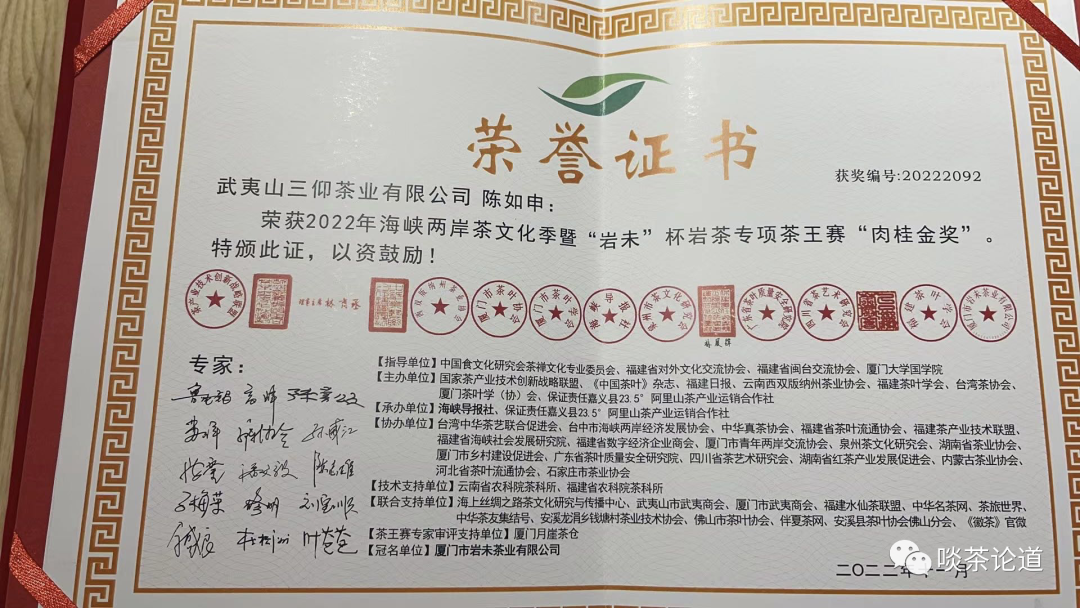 荣誉证书
获奖编号:20222092
武夷山三仰茶业有限公司 陈如申：
荣获2022年海峡两岸茶文化季暨“岩未”杯岩茶专项茶王赛“肉桂金奖”。
特颁此证，以资鼓励！
茶产业技术创新战略联盟
厦门市茶叶协会
厦门市茶叶学会
海峡导报社
泉州市茶文化研究会
广东省茶叶质量安全研究院
四川省茶艺术研究会
福建茶叶学会
厦门市岩未茶业有限公司
专家：
【指导单位】中国食文化研究会茶禅文化专业委员、福建省对外文化交流协会、福建省闽台交流协会、厦门大学国学院
【主办单位】国家茶产业技术创新战略联盟、《中国茶叶》杂志、福建日报、云南西双版纳州茶业协会、福建茶叶学会、台湾茶协会、
厦门茶叶学（协）会、保证责任嘉义县23.5°阿里山茶产业运销合作社
【承办单位】海峡导报社、保证责任嘉义县23.5°阿里山茶产业运销合作社
【协办单位】台湾中华茶艺联合促进会、台中市海峡两岸经济发展协会、中华真茶协会、福建省茶叶流通协会、福建茶产业技术联盟、
福建省海峡社会发展研究院、福建省数字经济企业商会、厦门市青年两岸交流协会、泉州茶文化研究会、湖南省茶业协会、
厦门市乡村建设促进会、广东省茶叶质量安全研究院、四川省茶艺术研究会、湖南省红茶产业发展促进会、内蒙古茶业协会、
河北省茶叶流通协会、石家庄市茶业协会
【技术支持单位】云南省农科院茶科所、福建省农科院茶科所
【联合支持单位】海上丝绸之路茶文化研究与传播中心、武夷山市武夷商会、厦门市武夷商会、福建水仙茶联盟、中华名茶网、茶旅世界、
中华茶友集结号、安溪龙涓乡钱塘村茶业技术协会、佛山市茶叶协会、伴夏茶网、安溪县茶叶协会佛山分会、《徽茶》官微
【茶王赛专家审评支持单位】厦门月崖茶仓
【冠名单位】厦门市岩未茶业有限公司
二〇二二年十一月
啖茶论道